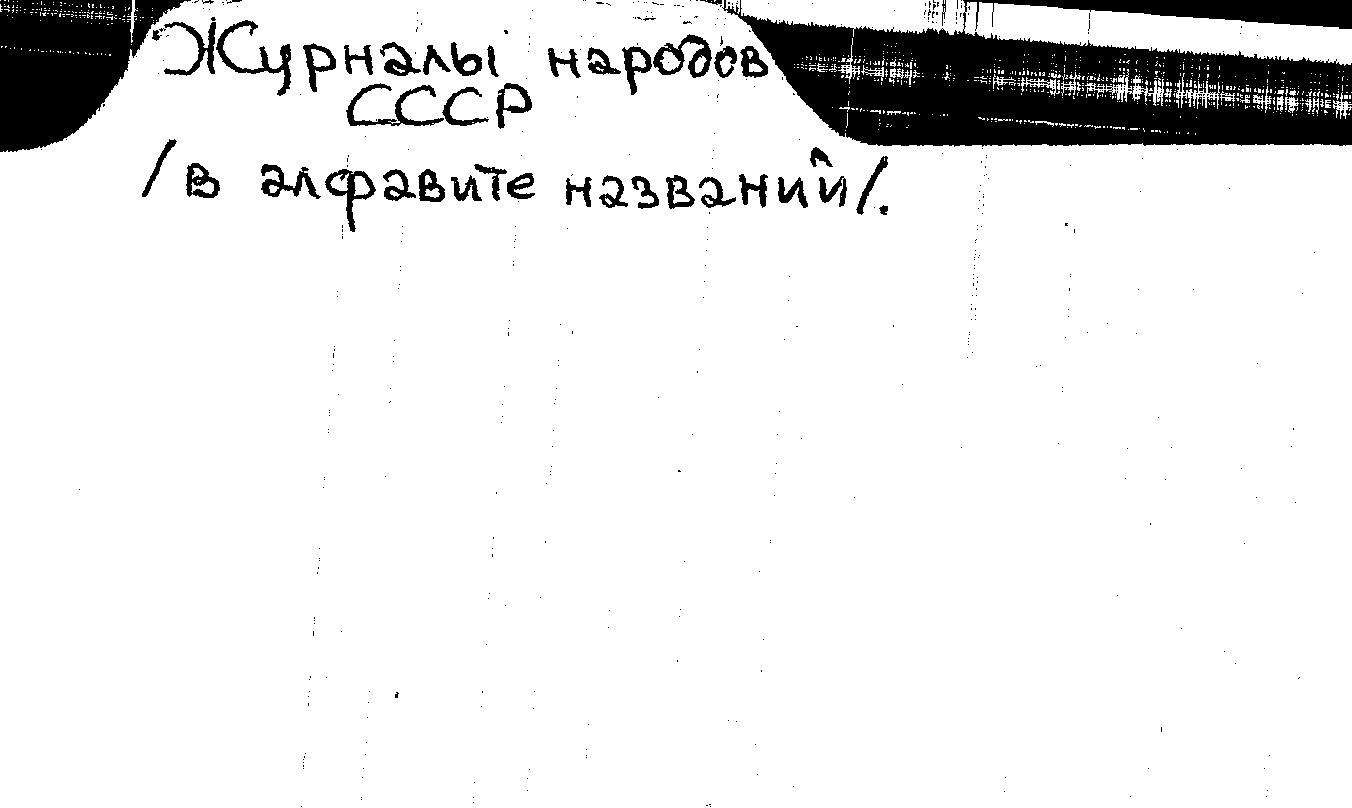 Журналы народов
СССР
/в алфавите названий/.